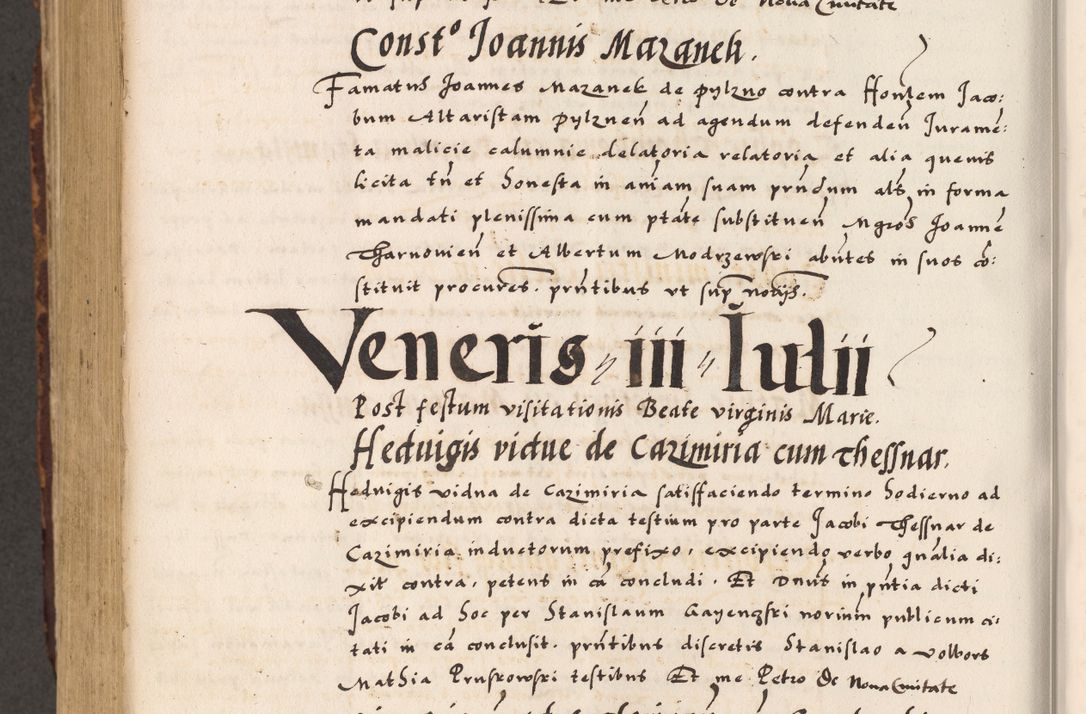 Nova Civitate
Constº Joannis Mazanek.
Famatus Joannes Mazanek de Pylzno contra Honestem Jaco:
bum Altaristam Pylznen̄ ad agendum defenden̄ Juramē:
ta malicie calumnie delatoria relatoria et alia quevis
licita tn̄ et honesta in an̄iam suam prn̄dum als̄ in forma
mandati plenissima cum ptāte substituen̄ Mgros̄ Joannē
Tharnovien̄ et Albertum Modrzewski abn̄tes in suos cō:
stituit procures. prn̄tibus ut sup̄ notijs.
Veneris iii Julii
Post festum visitationis Beate virginis Marie.
Hedvigis vidue de Cazimiria cum Thessnar.
Hedvigis vidua de Cazimiria satisfaciendo termino hodierno ad
excipiendum contra dicta testium pro parte Jacobi Thessnar de
Cazimiria inductorum prefixo, excipiendo verbo gn̄alia di:
xit contra, petens in cā concludi. Et Dnūs in pn̄tia dicti
Jacobi ad hoc per Stanislaum Gayenczski norium̄ publicum ci:
tati in cā conclusit. prn̄tibus discretis Stanislao a Volbors
Mathia Pruskowski testibus Et me Petro de Nova Civitate